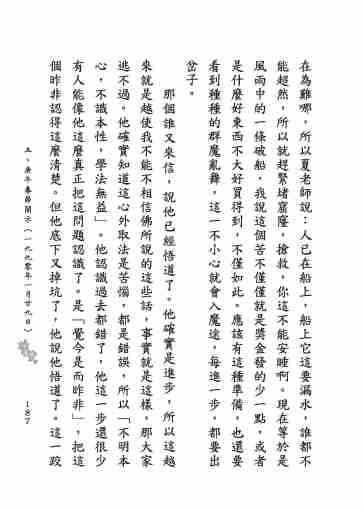 在為難哪，所以夏老師說：人已在船上，船上它這要漏水，誰都不
能超然，所以就趕緊堵窟窿，搶救，你這不能安睡啊。現在等於是
風雨中的一條破船，我說這個苦不僅僅就是獎金發的少一點，或者
是什麼好東西不大好買得到，不僅如此。應該有這種準備，也還要
看到種種的群魔亂舞，這一不小心就會入魔途，每進一步，都要出
岔子。
那個誰又來信，說他已經悟道了。他確實是進步，所以這越
來就是越使我不能不相信佛所說的這些話，事實就是這樣，那大家
逃不過。他確實知道這心外取法是苦惱，都是錯誤，所以「不明本
心，不識本性，學法無益」。他認識過去都錯了，他這一步還很少
有人能像他這麼真正把這問題認識了。是「覺今是而昨非」，把這
個昨非認得這麼清楚。但他底下又掉坑了，他說他悟道了。這一跤
五、庚午春節開示（一九九零年一月廿九日）
187